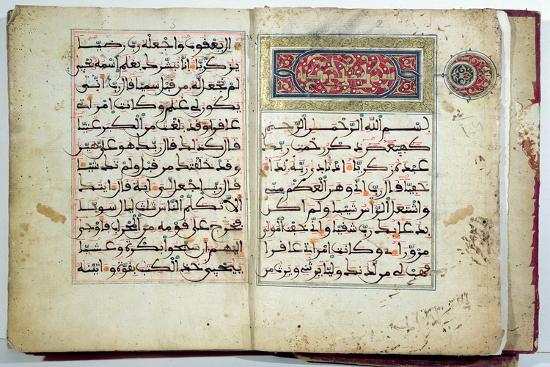 بسم الله الرحمن الرحيم
كهيعص ذكر رحمت ربك
عبده زكريا إذ نادى ربه نداء
خفيا قال رب إني وهن العظم مني
واشتعل الرأس شيبا ولم أكن
بدعائك رب شقيا وإني خفت الموالي
من وراءي وكانت امرأتي عاقرا
فهب لي من لدنك وليا يرثني ويرث من
ال يعقوب واجعله رب رضيا
يزكريا إنا نبشرك بغلم اسمه يحيى
لم نجعل له من قبل سميا قال رب أنى
يكون لي غلم وكانت امرأتي
عاقرا وقد بلغت من الكبر عتيا
قال كذلك قال ربك هو علي هين
وقد خلقتك من قبل ولم تك شيئا
قال رب اجعل لي ءاية قال ءايتك
ألا تكلم الناس ثلث ليال سويا
فخرج على قومه من المحراب فأوحى
إليهم أن سبحوا بكرة وعشيا
ييحيى خذ الكتب بقوة وءاتينه